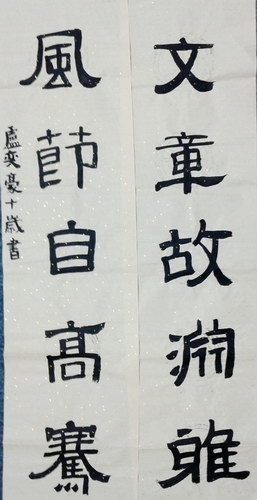 文章故淵雅
風節自高騫
盧奕豪十歲書